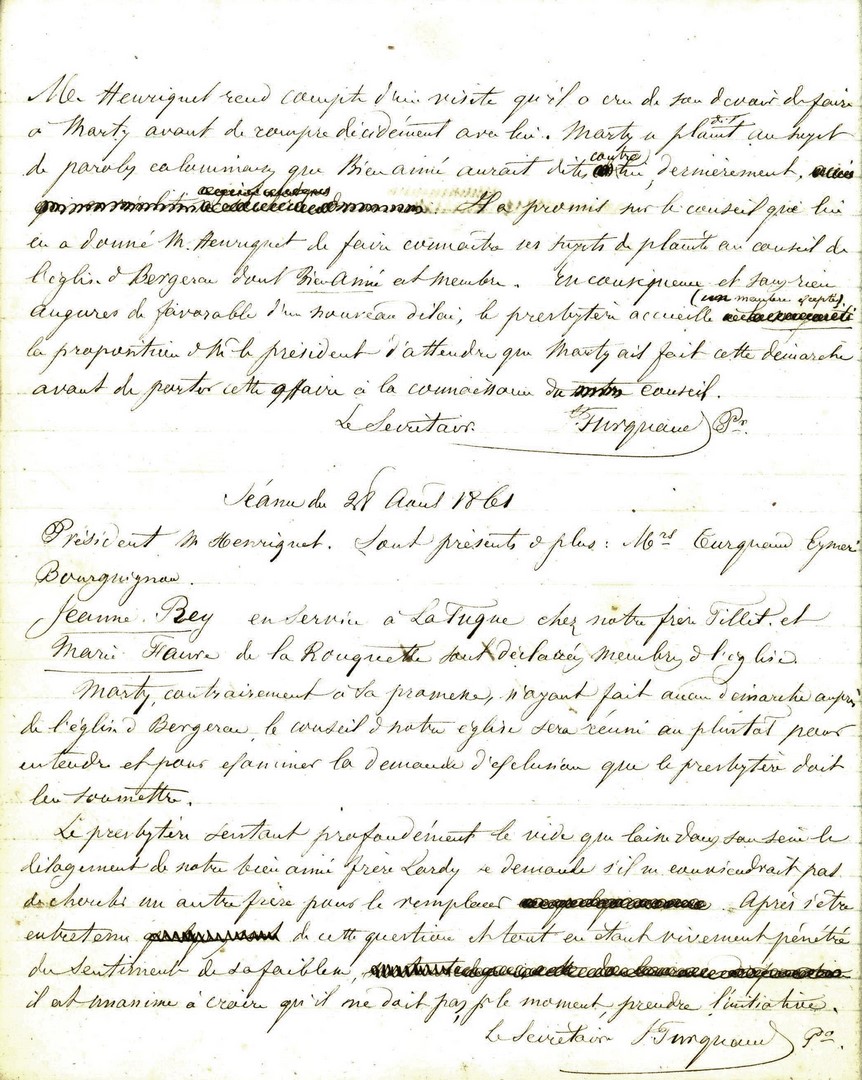 Mr Henriquet rend compte d'une visite qu'il a cru de son devoir de faire
à Marty avant de rompre décidément avec lui. Marty a plaint au sujet
de paroles calomnieuses que Bien aimé aurait dites contre lui, dernièrement.
Il a promis sur le conseil que lui
en a donné M. Henriquet de faire connaître ses sujets de plainte au conseil de
l'église d Bergerac dont Bien Aimé est membre. En conséquence et sans rien
augurer de favorable d'un nouveau délai, le presbytère accueille (un membre excepté)
la proposition d Mr le président d'attendre que Marty ait fait cette démarche
avant de porter cette affaire à la connaissance du conseil.
Le Secrétaire Turquand Pr.
Séance du 28 Août 1861
Président M Henriquet. Sont présents d plus : Mrs Turquand Eymer
Bourguignon.
Jeanne Rey en service à La Tuque chez notre frère Tillet. et
Marie Faure de la Rouquette sont déclarées membres d l'église.
Marty, contrairement à sa promesse, n'ayant fait aucune démarche auprès
de l'église d Bergerac, le conseil d notre église sera réuni au plustôt pour
entendre et pour examiner la demande d'exclusion que le presbytère doit
leur soumettre.
Le presbytère sentant profondément le vide que laisse dans son sein le
délogement de notre bien aimé frère Lardy se demande s'il ne conviendrait pas
de chercher un autre frère pour le remplacer. Après s'être
entretenu de cette question et tout en étant vivement pénétré
du sentiment de sa faiblesse,
il est unanime à croire qu'il ne doit pas, pr le moment, prendre l'initiative.
Le Secrétaire Turquand Pr.